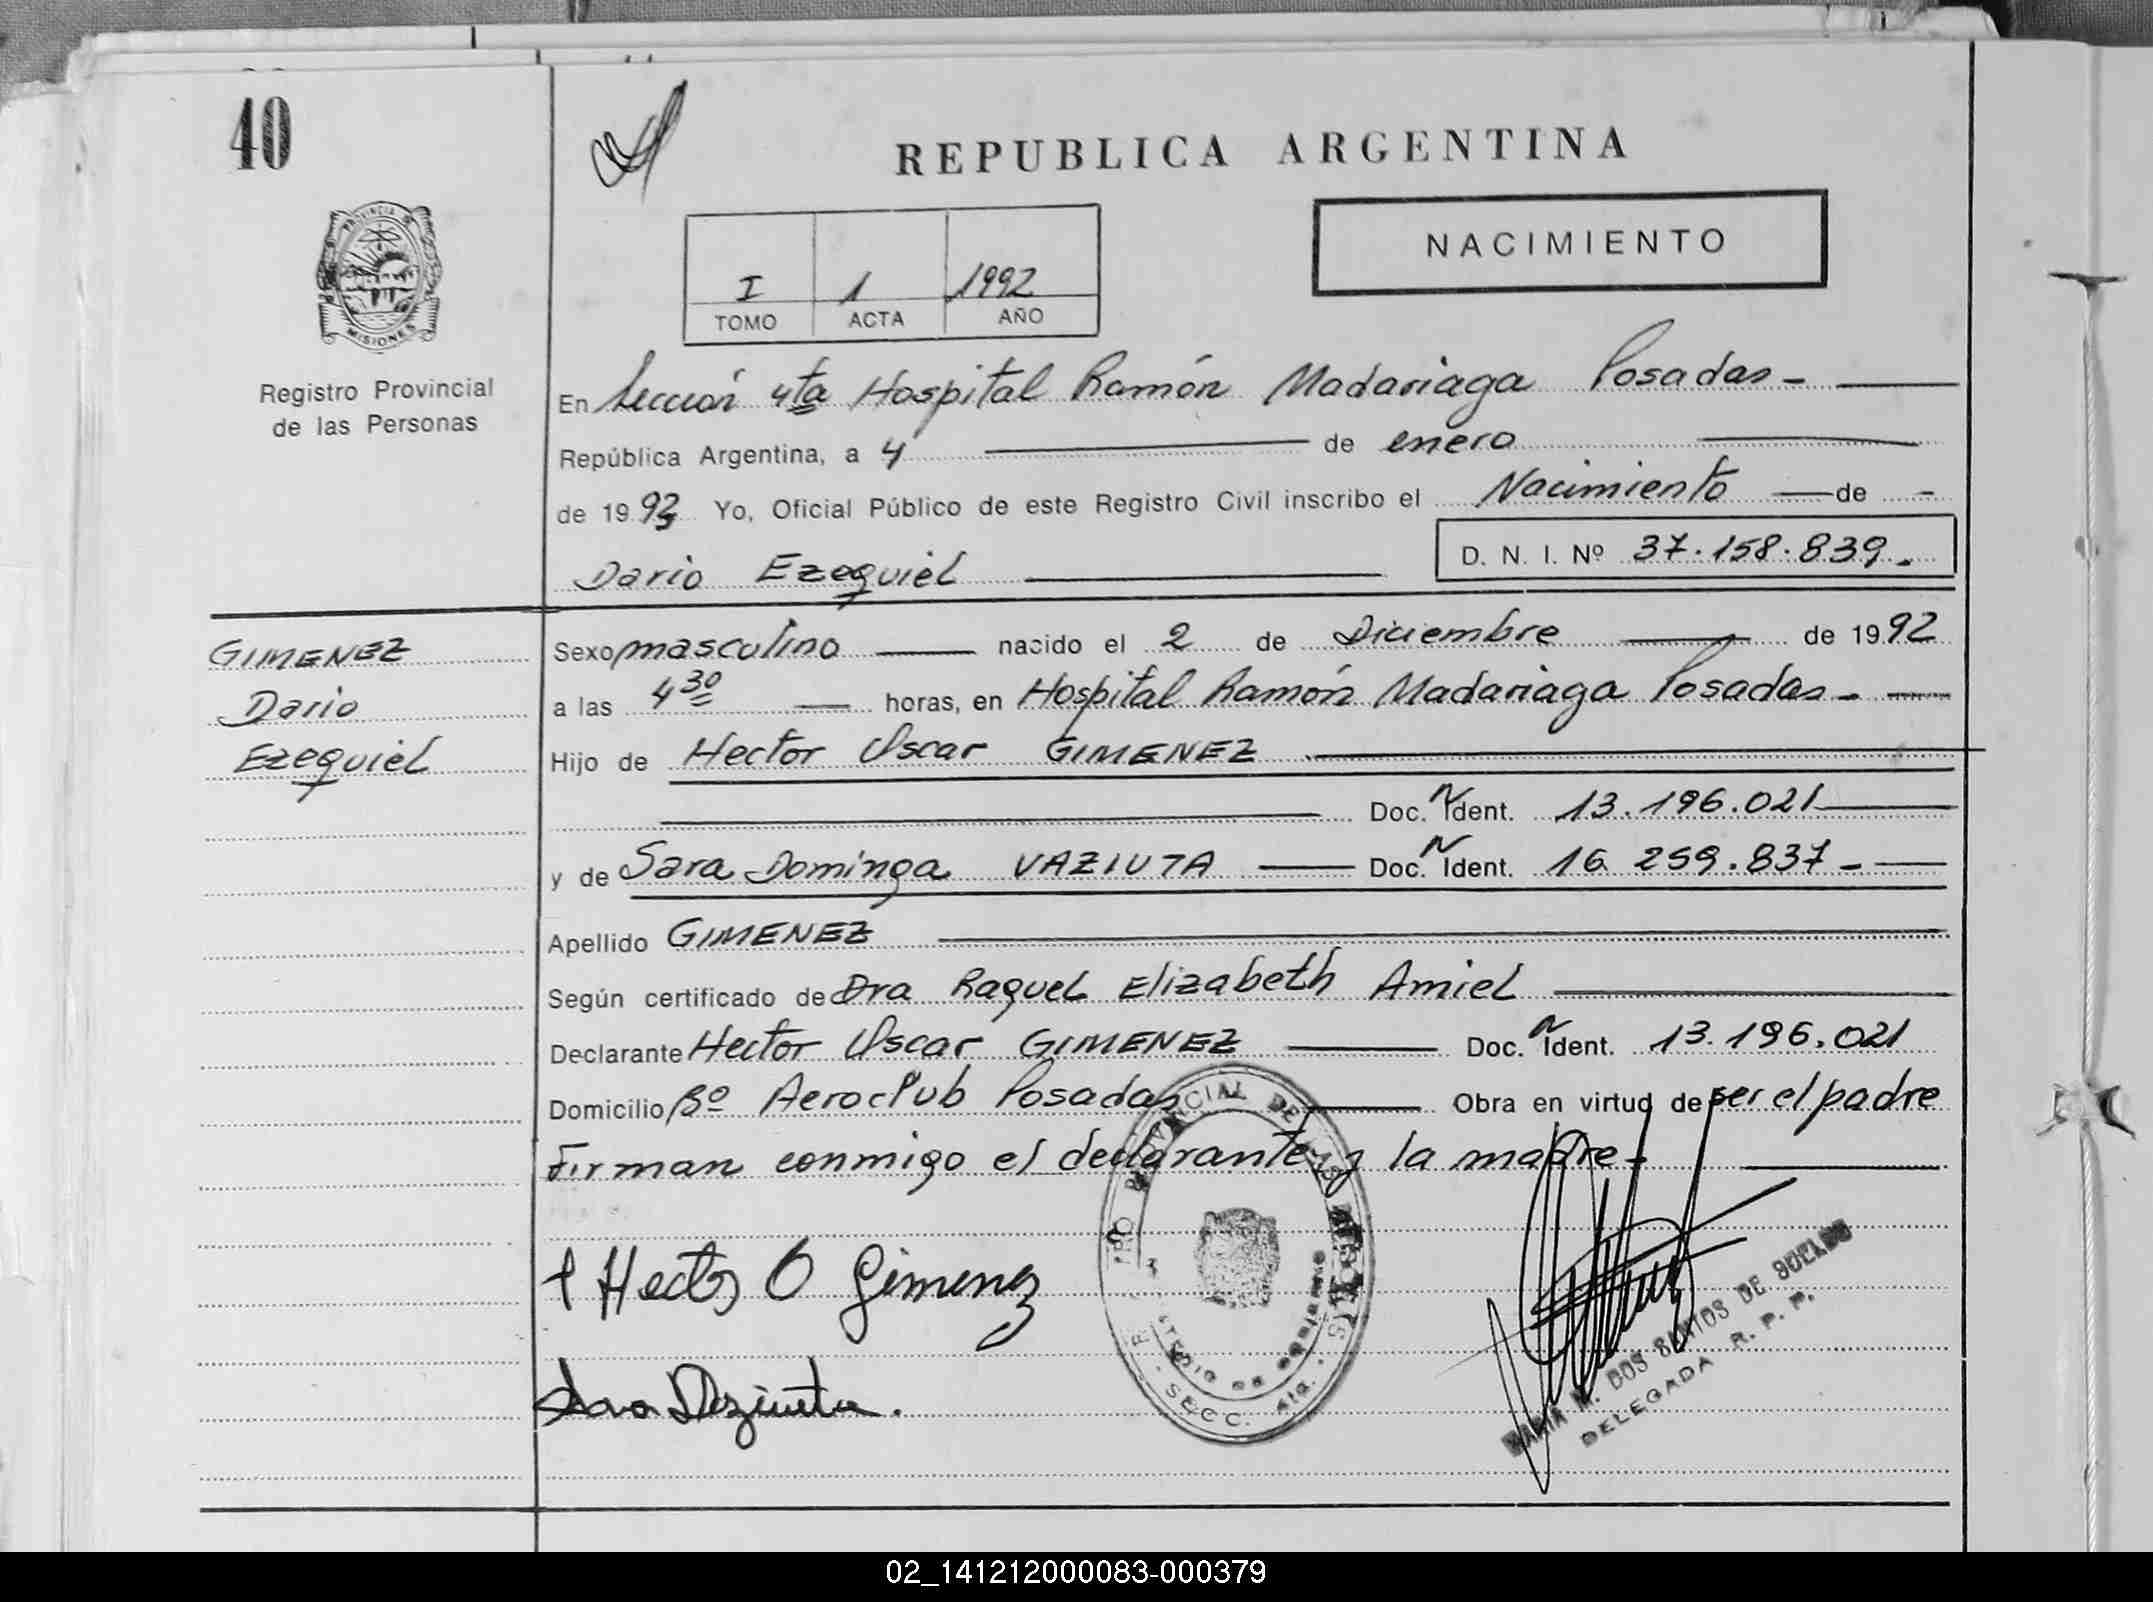 40
REPUBLICA ARGENTINA
PROVINCIA DE
MISIONES
Registro Provincial
de las Personas
NACIMIENTO
I 1 1992
TOMO ACTA AÑO
En Sección 4ta Hospital Ramón Madariaga Posadas -
República Argentina, a 4 de enero
de 1993 Yo, Oficial Público de este Registro Civil inscribo el Nacimiento de -
Dario Ezequiel D. N. I. Nº 37.158.839.
GIMENEZ
Dario
Ezequiel
Sexo masculino nacido el 2 de Diciembre de 1992
a las 4 30 horas, en Hospital Ramón Madariaga Posadas -
Hijo de Hector Oscar GIMENEZ
Doc. N Ident. 13.196.021
y de Sara Dominga VAZIUTA Doc. N Ident. 16 259.837 -
Apellido GIMENEZ
Según certificado de Dra Raquel Elizabeth Amiel
Declarante Hector Oscar GIMENEZ Doc. N Ident. 13.196.021
Domicilio Bº Aeroclub Posadas Obra en virtud de ser el padre
Firman conmigo el declarante y la madre -
Hector O Gimenez
SECC. 4ta.
MARIA M. DOS SANTOS DE
DELEGADA R. P. P.
02_141212000083-000379